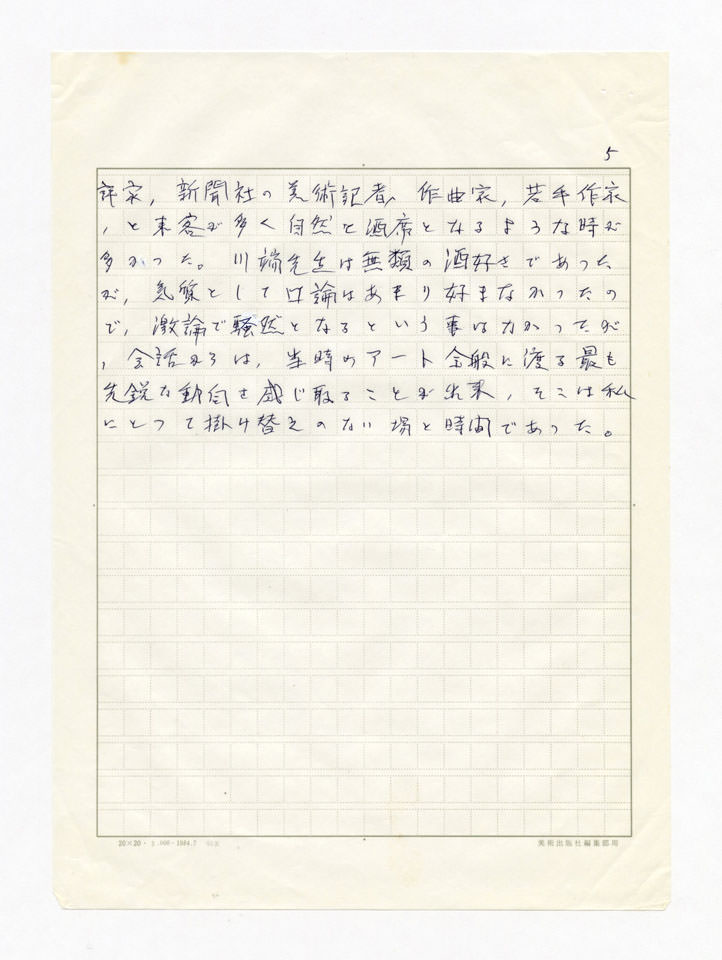 5
評家，新聞社の美術記者、作曲家，若手作家
，と来客が多く自然と酒席となるような時が
多かった。川端先生は無類の酒好きであった
が，気質として口論はあまり好まなかったの
で，激論で騒然となるという事はなかったが
，会話からは，当時のアート全般に渡る最も
先鋭な動向を感じ取ることが出来，そこは私
にとって掛け替えのない場と時間であった。
20×20・ 1984.7
美術出版社編集部用